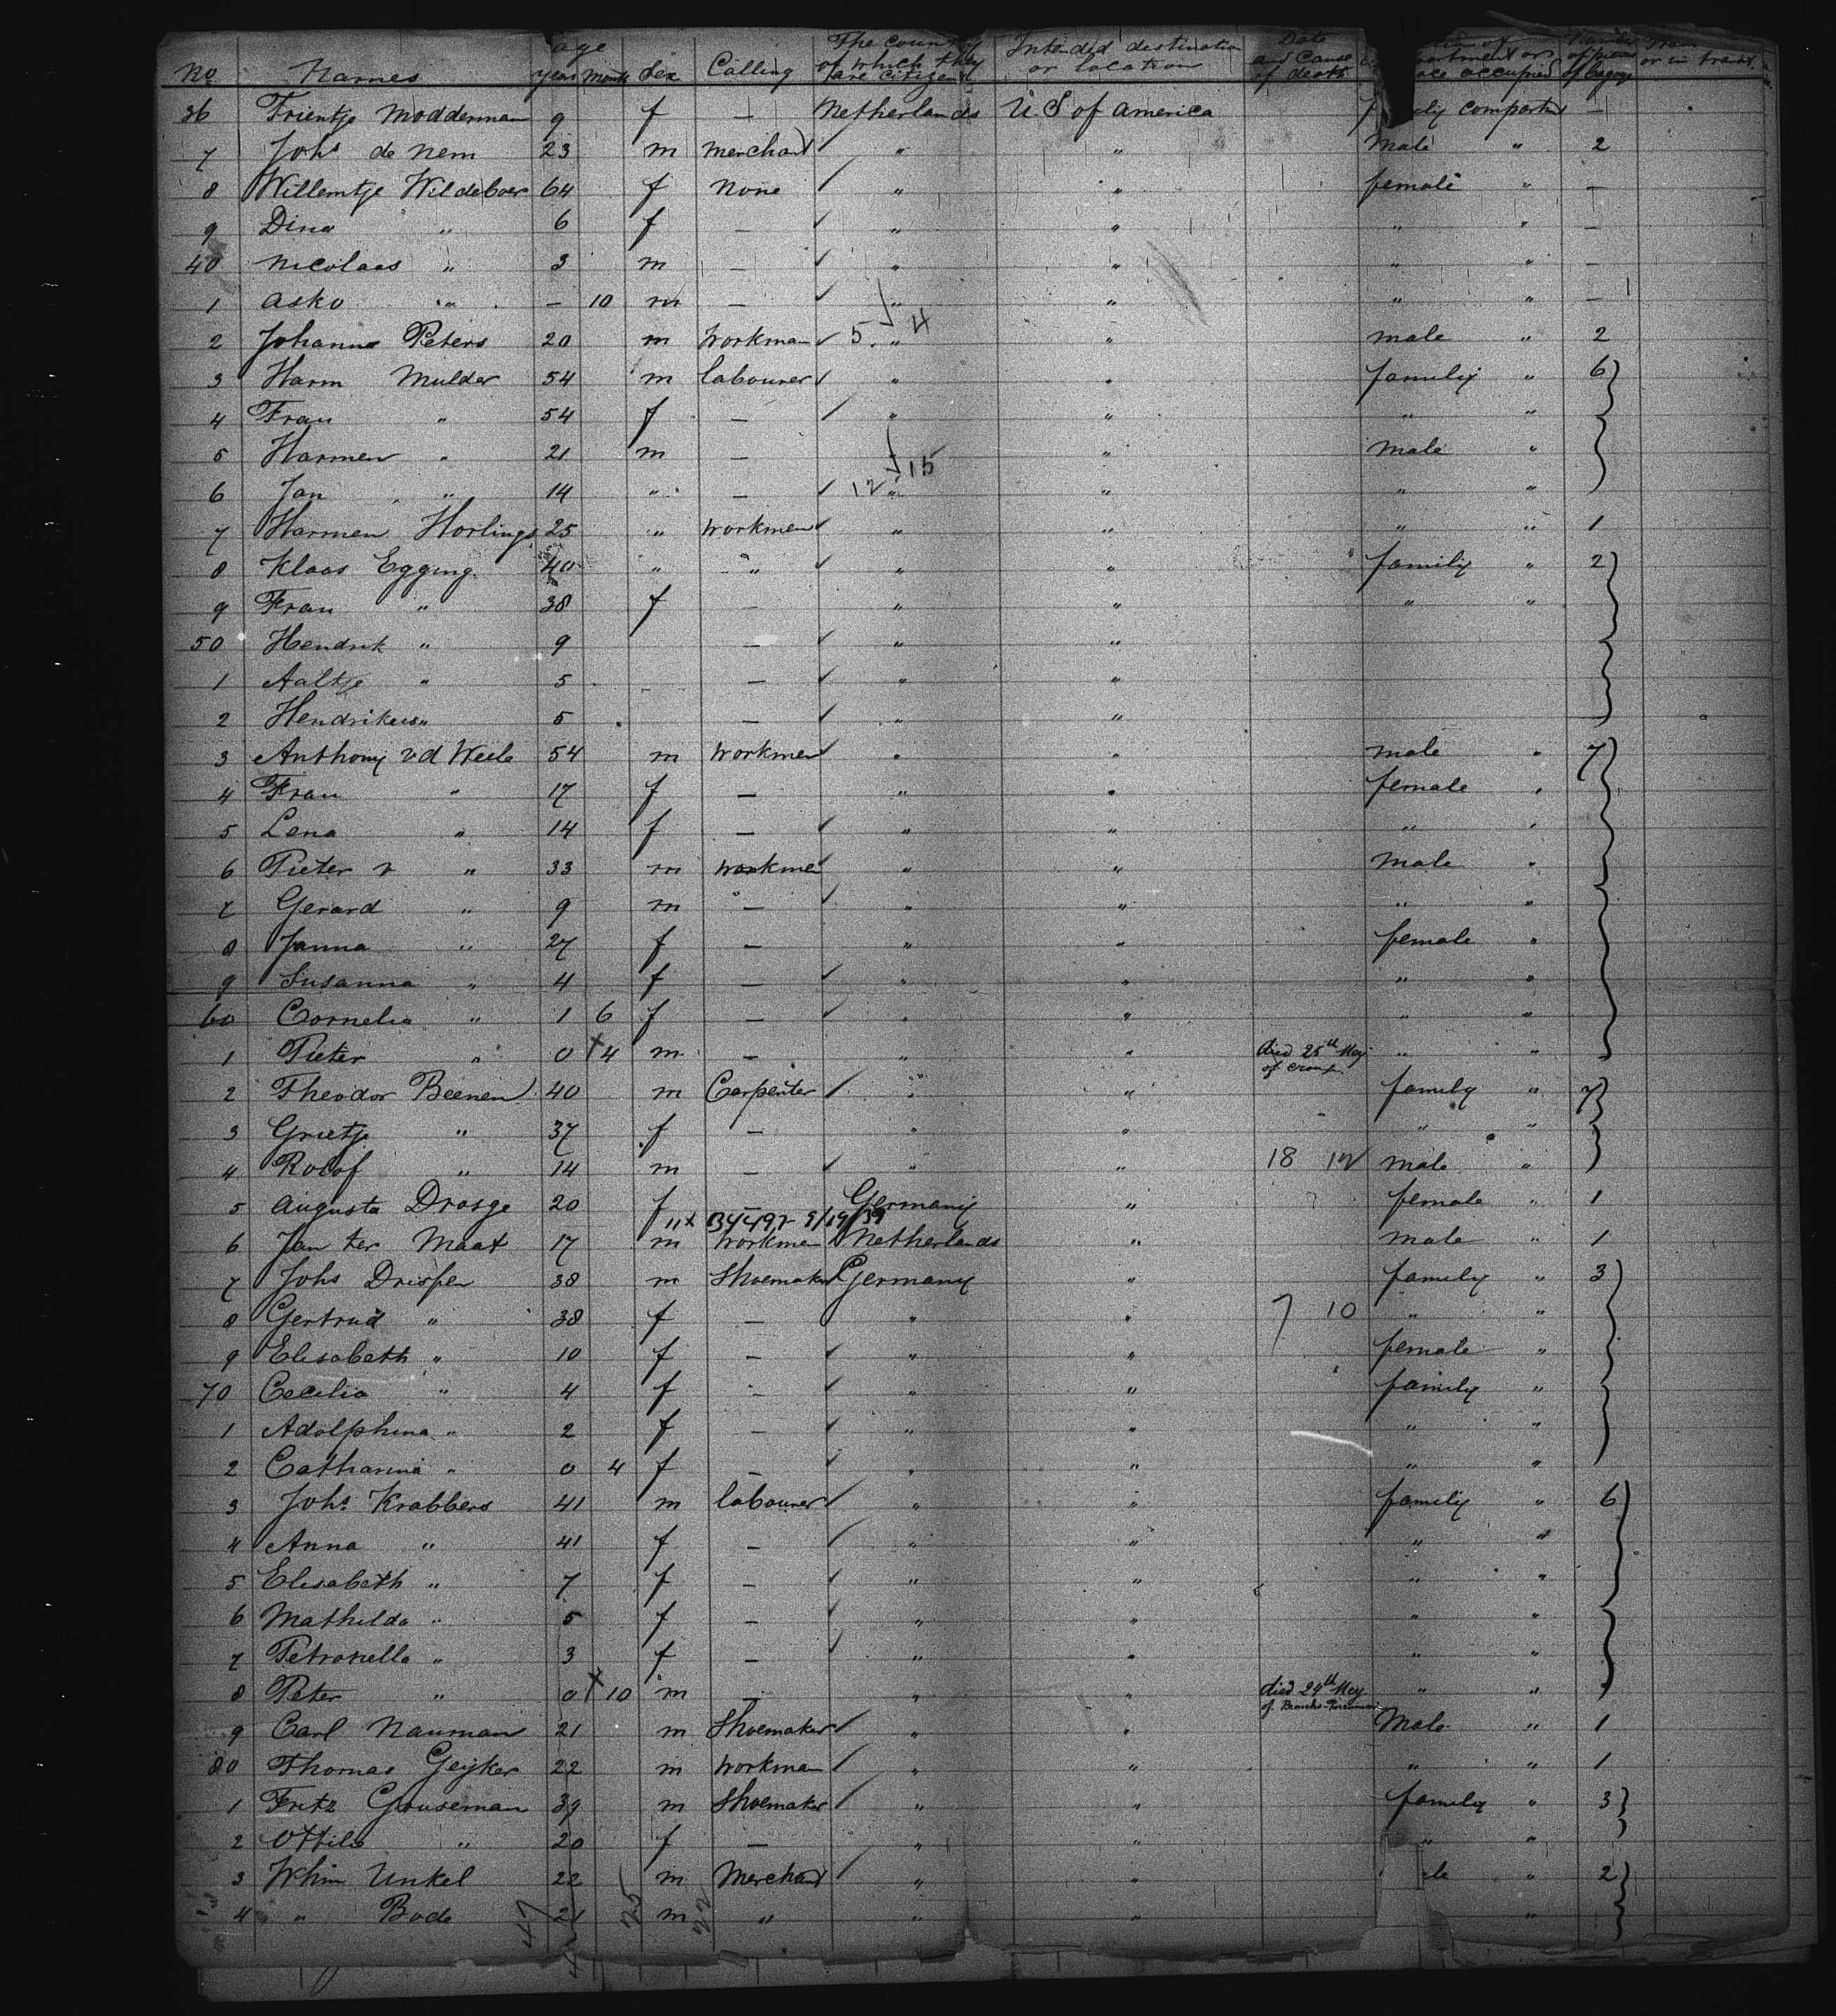 age The country Intended destination Date
No Names years months Sex Calling of which they are citizens or location and Cause of death occupied of bagage or in transit
36 Trientje Modderman 9 f — Netherlands U S of america compartm —
7 Johs de Nem 23 m merchant " " male " 2
8 Willemtje Wildeboer 64 f none " " female " —
9 Dina " 6 f — " " " " —
40 Nicolaas " 3 m — " " " " —
1 Asko " — 10 m — " " " " —
2 Johannes Peters 20 m workman 5 " 4 " male " 2
3 Harm Mulder 54 m labourer " " family " 6
4 Frau " 54 f — " " " "
5 Harmen " 21 m — 15 " male "
6 Jan " 14 " — 12 " " " "
7 Harmen Horlings 25 " workmen " " " " 1
8 Klaas Egging 40 " " " " family " 2
9 Frau " 38 f — " " " "
50 Hendrik " 9 — " "
1 Aaltje " 5 — " "
2 Hendrikus " 5 — " "
3 Anthony v d Weele 54 m workmen " " male " 7
4 Frau " 17 f — " " female "
5 Lena " 14 f — " " " "
6 Pieter v " 33 m workmen " " male "
7 Gerard " 9 m — " " " "
8 Janna " 27 f — " " female "
9 Susanna " 4 f — " " " "
60 Cornelia " 1 6 f — " " " "
1 Pieter " 0 4 m — " " died 25th Mey of croup " "
2 Theodor Beenen 40 m Carpenter " " family " 7
3 Grietje " 37 f — " " " "
4 Roelof " 14 m — " " 18 12 male "
5 Augusta Drosge 20 f — Germany " female " 1
6 Jan ter Maat 17 m workmen Netherlands " male " 1
7 Johs Drispen 38 m Shoemaker Germany " family " 3
8 Gertrud " 38 f — " " 7 10 " "
9 Elisabeth " 10 f — " " female "
70 Cecilia " 4 f — " " family "
1 Adolphina " 2 f — " " " "
2 Catharina " 0 4 f — " " " "
3 Johs Krabbers 41 m labourer " " family " 6
4 Anna " 41 f — " " " "
5 Elisabeth " 7 f — " " " "
6 Mathilda " 5 f — " " " "
7 Petronella " 3 f — " " " "
8 Peter " 0 10 m — " " died 29th Mey of " "
9 Carl Nauman 21 m Shoemaker " " Male " 1
80 Thomas Geijker 22 m workman " " " " 1
1 Fritz Gouseman 39 m Shoemaker " " family " 3
2 Ottilie " 20 f — " " " "
3 Whim Unkel 22 m Merchant " " " 2
4 " Bode 21 m " " " "
47 25 22